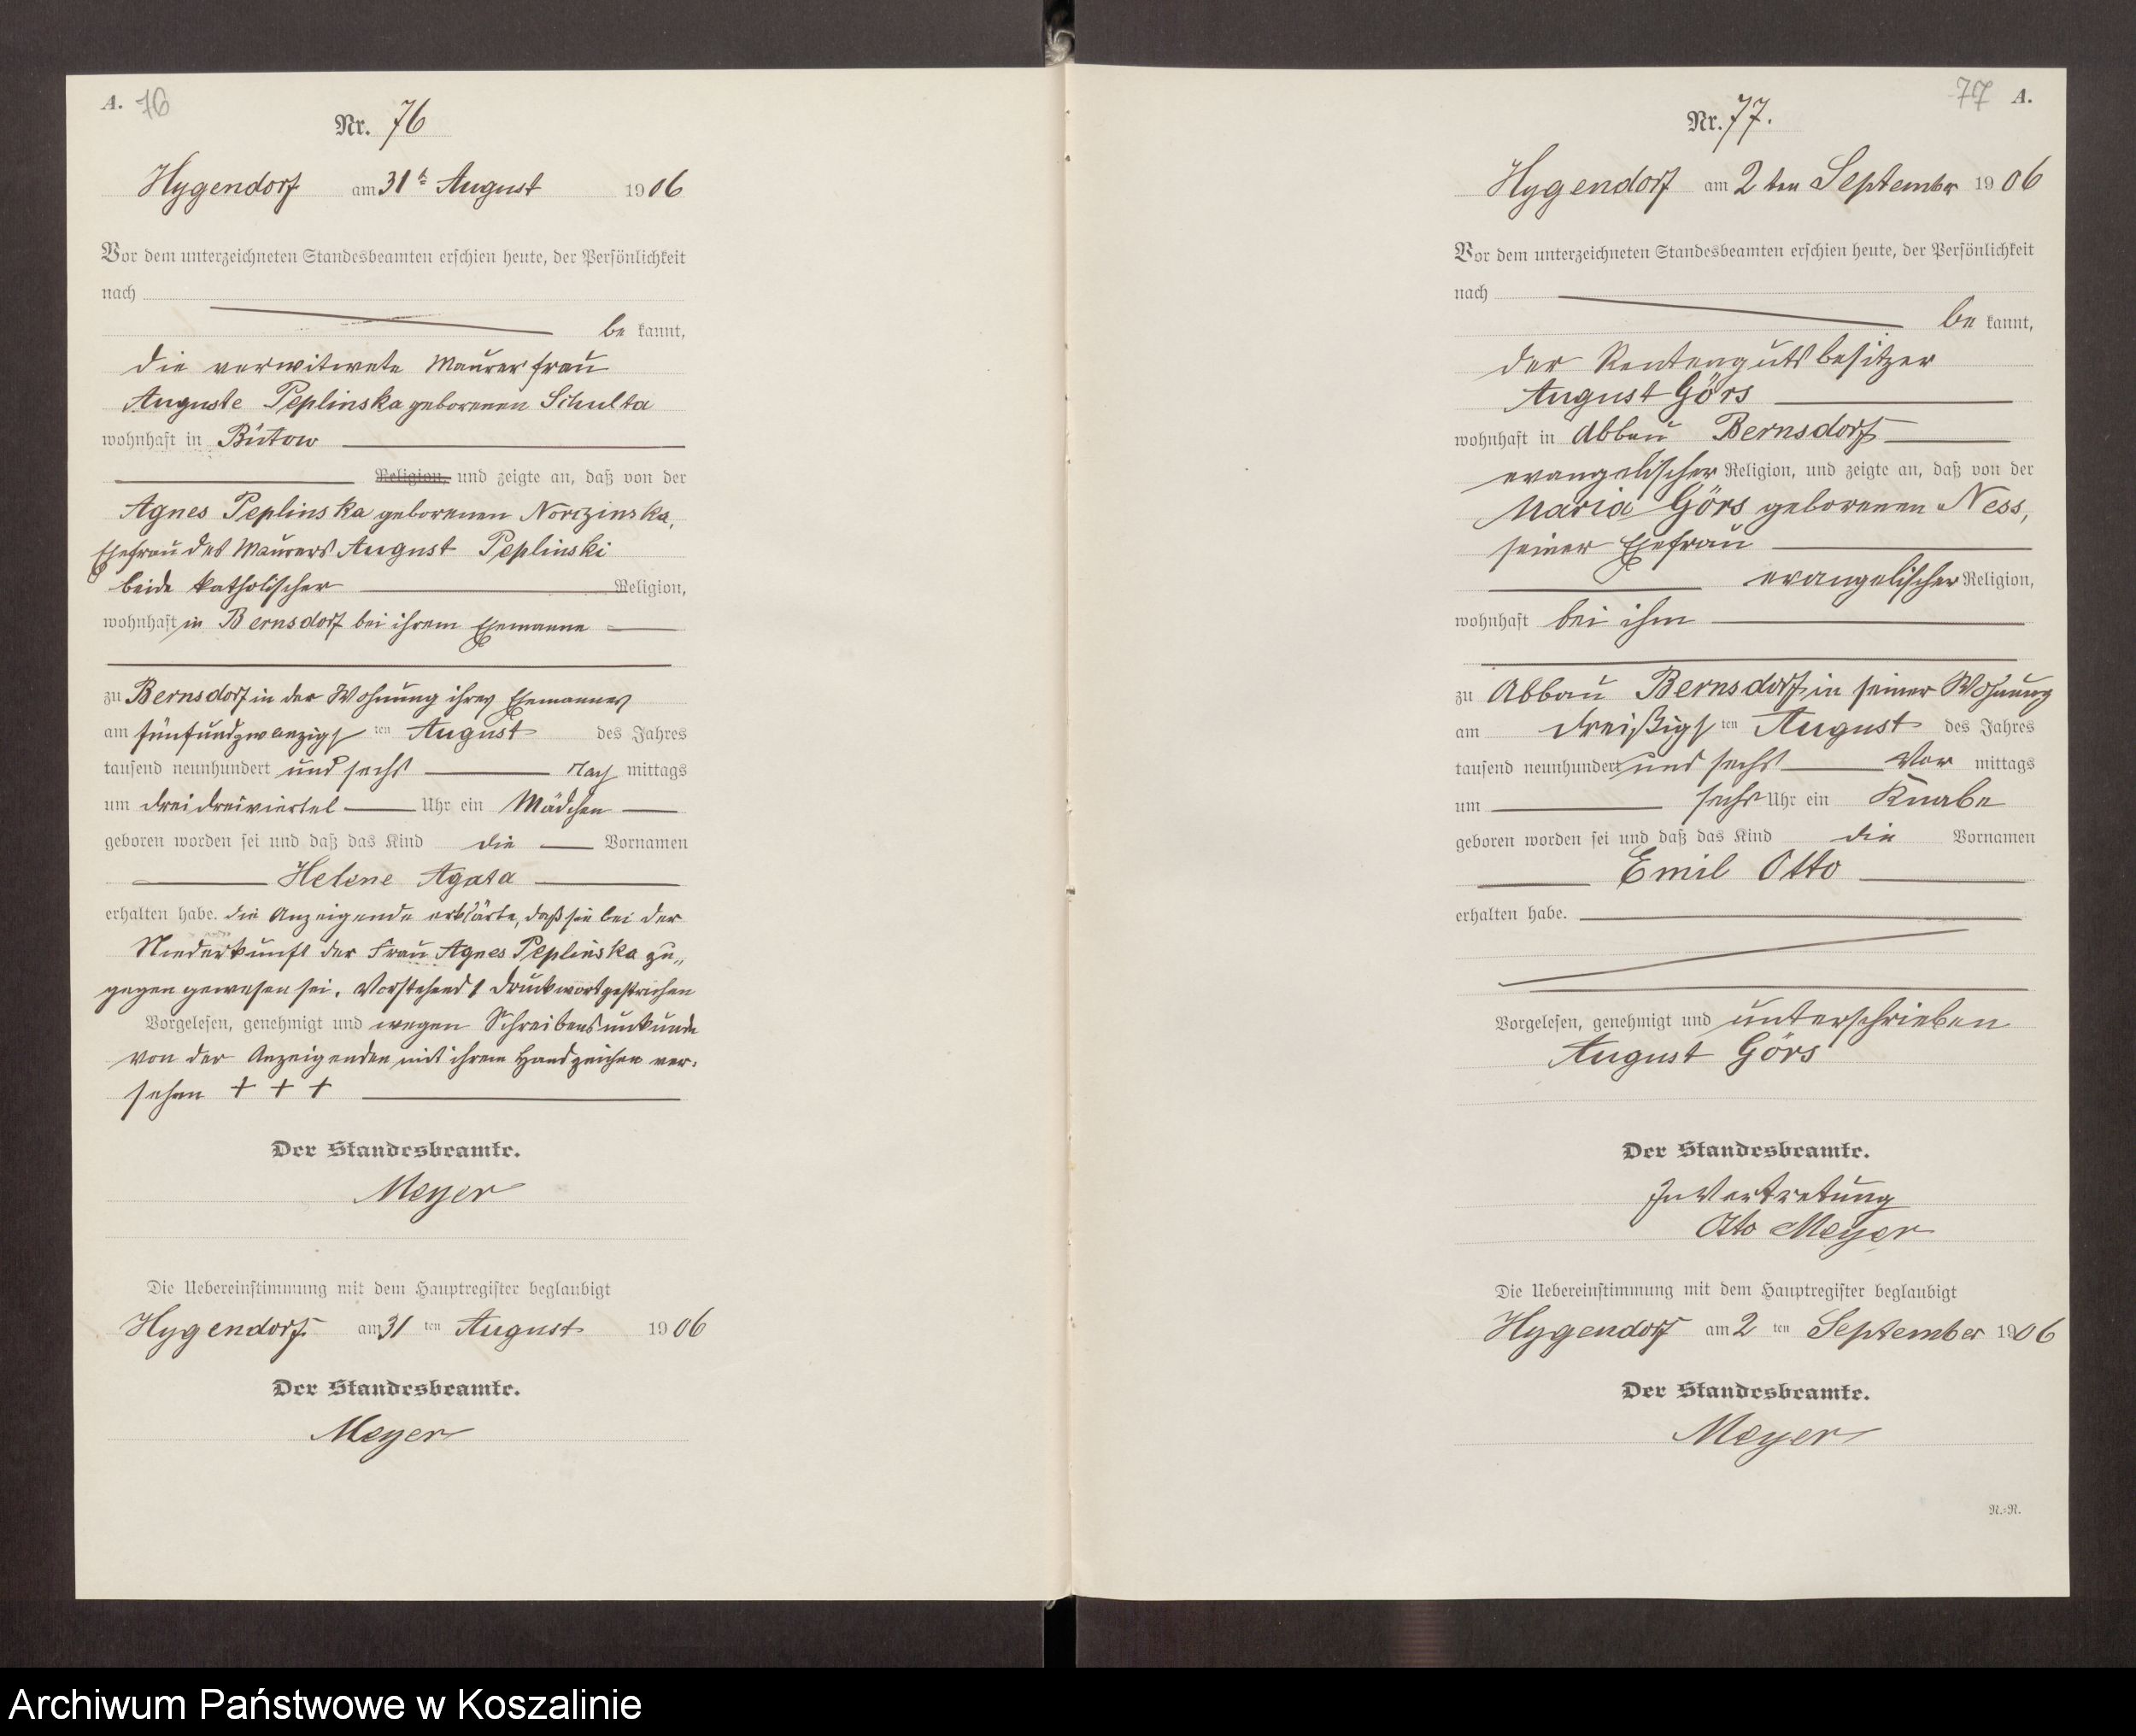 A. 76
Nr. 76
Hygendorf am 31 te August 1906
Vor dem unterzeichneten Standesbeamten erschien heute, der Persönlichkeit
nach
be kannt,
die verwitwete Maurerfrau
Auguste Peplinska geborenen Schulta
wohnhaft in Bütow
Religion, und zeigte an, daß von der
Agnes Peplinska geborenen
Ehefrau des Maurers August Peplinski
beide katholischer Religion,
wohnhaft in Bernsdorf bei ihrem Ehemanne
zu Bernsdorf in der Wohnung ihres Ehemannes
am fünfundzwanzigs ten August des Jahres
tausend neunhundert und sechs Nach mittags
um dreidreiviertel Uhr ein Mädchen
geboren worden sei und daß das Kind die Vornamen
Helene Agata
erhalten habe. die Anzeigende erklärte, daß sie bei der
Niederkunft der Frau Agnes Peplinska zu„
gegen gewesen sei. Vorstehend 1 Druckwort gestrichen
Vorgelesen, genehmigt und wegen Schreibensunkunde
von der Anzeigenden mit ihrem Handzeichen ver-
sehen + + +
Der Standesbeamte.
Meyer
Die Uebereinstimmung mit dem Hauptregister beglaubigt
Hygendorf am 31 ten August 1906
Der Standesbeamte.
Meyer
77 A.
Nr. 77.
Hygendorf am 2 ten September 1906
Vor dem unterzeichneten Standesbeamten erschien heute, der Persönlichkeit
nach
be kannt,
der Rentengutsbesitzer
August Görs
wohnhaft in Abbau Bernsdorf
evangelischer Religion, und zeigte an, daß von der
Maria Görs geborenen Ness,
seiner Ehefrau
evangelischer Religion,
wohnhaft bei ihm
zu Abbau Bernsdorf in seiner Wohnung
am dreißigs ten August des Jahres
tausend neunhundert und sechs Vor mittags
um sechs Uhr ein Knabe
geboren worden sei und daß das Kind die Vornamen
Emil Otto
erhalten habe.
Vorgelesen, genehmigt und unterschrieben
August Görs
Der Standesbeamte.
In Vertretung
Otto Meyer
Die Uebereinstimmung mit dem Hauptregister beglaubigt
Hygendorf am 2 ten September 1906
Der Standesbeamte.
Meyer
N.=N.
Archiwum Państwowe w Koszalinie